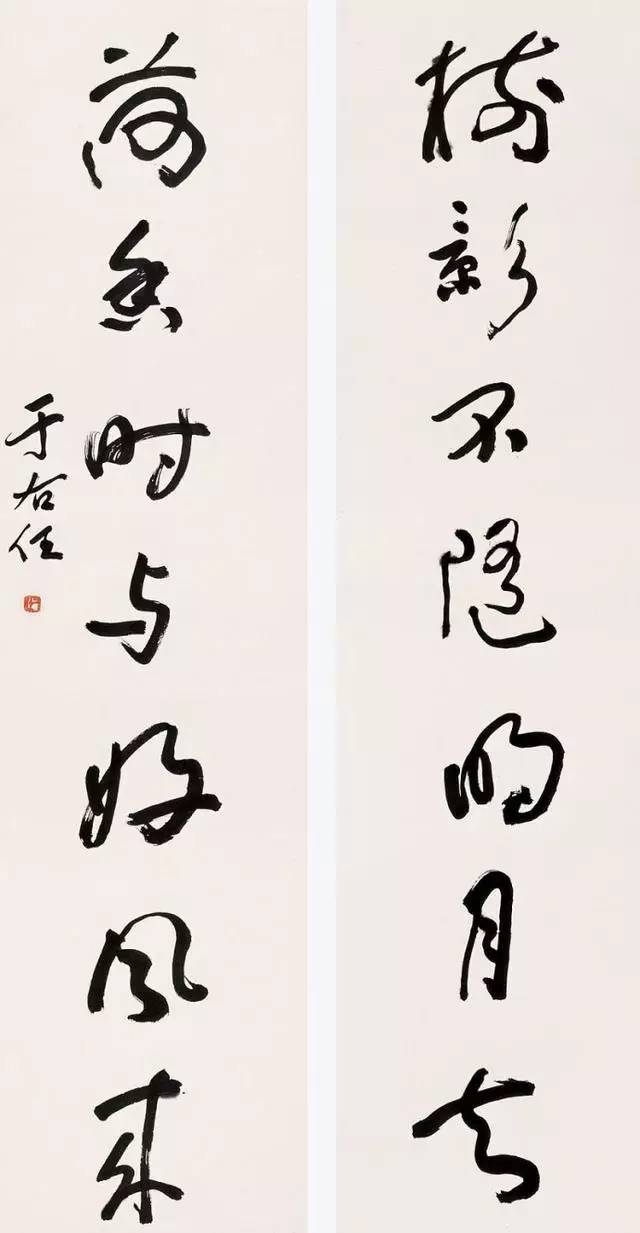 树影不随明月去
荷香时与好风来
于右任